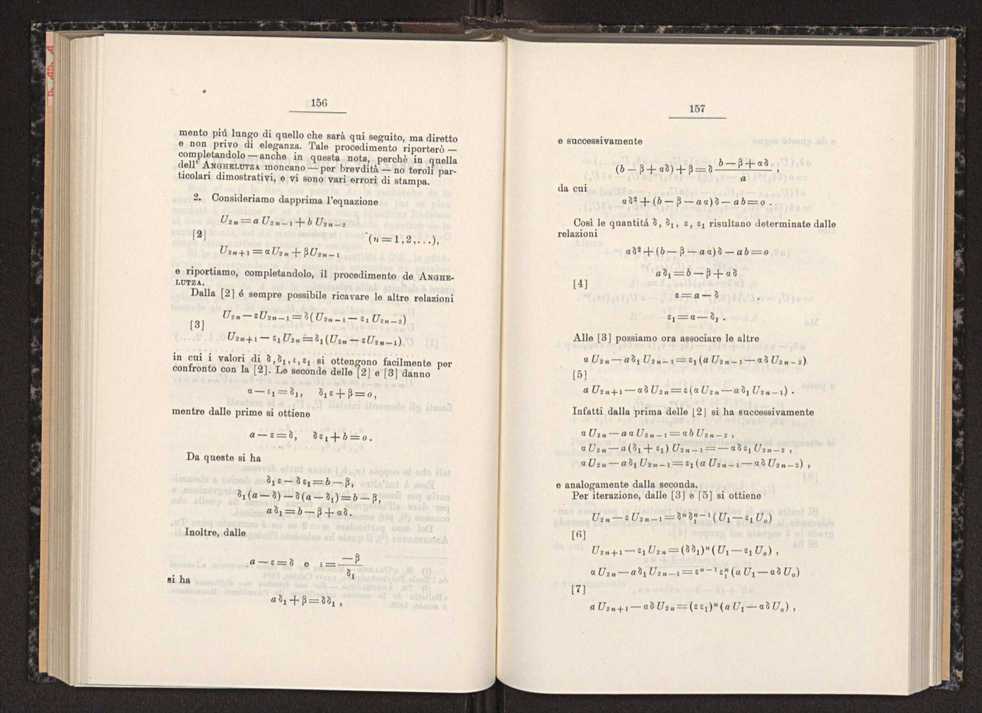 156
mento piú lungo di quello che sarà qui seguito, ma diretto
e non privo di eleganza. Tale procedimento riporterò —
completandolo — anche in questa nota, perchè in quella
dell' ANGHELUTZA moncano — per brevdità — no teroli par-
ticolari dimostrativi, e vi sono vari errori di stampa.
2. Consideriamo dapprima l'equazione
U₂ₙ = a U₂ₙ₋₁ + b U₂ₙ₋₂
[2] (n = 1, 2, ...),
U₂ₙ₊₁ = α U₂ₙ + β U₂ₙ₋₁
e riportiamo, completandolo, il procedimento de ANGHE-
LUTZA.
Dalla [2] é sempre possibile ricavare le altre relazioni
U₂ₙ — ε U₂ₙ₋₁ = δ (U₂ₙ₋₁ — ε₁ U₂ₙ₋₂)
[3]
U₂ₙ₊₁ — ε₁ U₂ₙ = δ₁ (U₂ₙ — ε U₂ₙ₋₁)
in cui i valori di δ, δ₁, ε, ε₁ si ottengono facilmente per
confronto con la [2]. Le seconde delle [2] e [3] danno
α — ε₁ = δ₁, δ₁ ε + β = o,
mentre dalle prime si ottiene
a — ε = δ, δ ε₁ + b = o.
Da queste si ha
δ₁ ε — δ ε₁ = b — β,
δ₁ (a — δ) — δ (α — δ₁) = b — β,
a δ₁ = b — β + α δ.
Inoltre, dalle
a — ε = δ e ε = —β / δ₁
si ha
a δ₁ + β = δ δ₁ ,
157
e successivamente
(b — β + α δ) + β = δ (b — β + α δ) / a ,
da cui
α δ² + (b — β — a α) δ — a b = o .
Così le quantitá δ, δ₁, ε, ε₁ risultano determinate dalle
relazioni
α δ² + (b — β — a α) δ — a b = o
a δ₁ = b — β + α δ
[4]
ε = a — δ
ε₁ = α — δ₁ .
Alle [3] possiamo ora associare le altre
a U₂ₙ — a δ₁ U₂ₙ₋₁ = ε₁ (a U₂ₙ₋₁ — α δ U₂ₙ₋₂)
[5]
a U₂ₙ₊₁ — α δ U₂ₙ = ε (a U₂ₙ — a δ₁ U₂ₙ₋₁) .
Infatti dalla prima delle [2] si ha successivamente
a U₂ₙ — a α U₂ₙ₋₁ = a b U₂ₙ₋₂ ,
a U₂ₙ — a (δ₁ + ε₁) U₂ₙ₋₁ = — a δ ε₁ U₂ₙ₋₂ ,
a U₂ₙ — a δ₁ U₂ₙ₋₁ = ε₁ (a U₂ₙ₋₁ — α δ U₂ₙ₋₂) ,
e analogamente dalla seconda.
Per iterazione, dalle [3] e [5] si ottiene
U₂ₙ — ε U₂ₙ₋₁ = δⁿ δ₁ⁿ⁻¹ (U₁ — ε₁ Uₒ)
[6]
U₂ₙ₊₁ — ε₁ U₂ₙ = (δ δ₁)ⁿ (U₁ — ε₁ Uₒ) ,
a U₂ₙ — a δ₁ U₂ₙ₋₁ = εⁿ⁻¹ ε₁ⁿ (a U₁ — α δ Uₒ)
[7]
a U₂ₙ₊₁ — α δ U₂ₙ = (ε ε₁)ⁿ (a U₁ — α δ Uₒ) ,